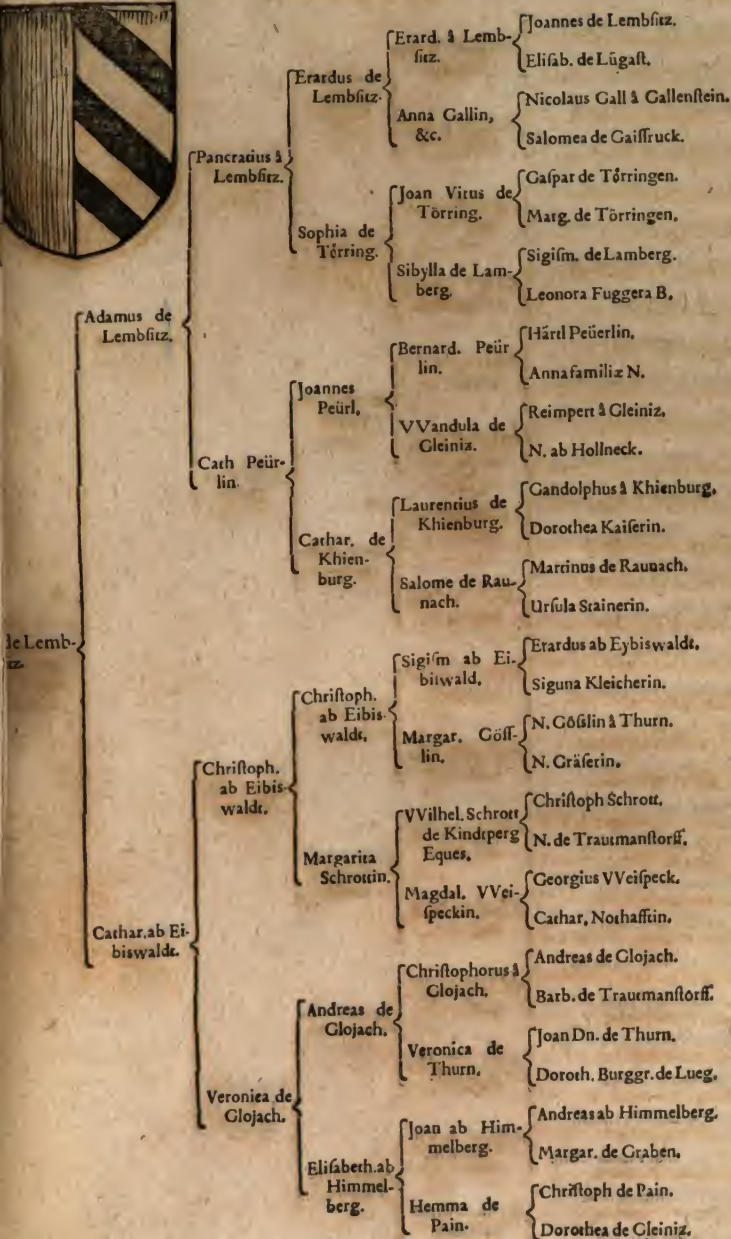 de Lemb-
tz.
Adamus de
Lembſitz.
Cathar. ab Ei-
biswaldt.
Pancratius à
Lembſitz.
Cath Peür-
lin.
Chriſtoph.
ab Eibis-
waldt.
Veronica de
Glojach.
Erardus de
Lembſitz.
Sophia de
Tórring.
Joannes
Peürl.
Cathar. de
Khien-
burg.
Chriſtoph.
ab Eibis-
waldt.
Margarita
Schrottin.
Andreas de
Glojach.
Eliſabeth. ab
Himmel-
berg.
Erard. à Lemb-
ſitz.
Anna Gallin,
&c.
Joan Vitus de
Törring.
Sibylla de Lam-
berg.
Bernard. Peür
lin.
VVandula de
Gleiniz.
Laurentius de
Khienburg.
Salome de Rau-
nach.
Sigiſm ab Ei-
biswald.
Margar. Göſſ-
lin.
VVilhel. Schrott
de Kindtperg
Eques.
Magdal. VVei-
ſpeckin.
Chriſtophorus à
Glojach.
Veronica de
Thurn.
Joan ab Him-
melberg.
Hemma de
Pain.
Joannes de Lembſitz.
Eliſab. de Lügaſt.
Nicolaus Gall à Gallenſtein.
Salomea de Gaiſſruck.
Gaſpar de Tórringen.
Marg. de Törringen.
Sigiſm. de Lamberg.
Leonora Fuggera B.
Härtl Peüerlin.
Anna familiæ N.
Reimpert à Gleiniz.
N. ab Hollneck.
Gandolphus à Khienburg.
Dorothea Kaiſerin.
Martinus de Raunach.
Urſula Stainerin.
Erardus ab Eybiswaldt.
Siguna Kleicherin.
N. Gößlin à Thurn.
N. Gräſerin.
Chriſtoph Schrott.
N. de Trautmanſtorff.
Georgius VVeiſpeck.
Cathar. Nothafftin.
Andreas de Glojach.
Barb. de Trautmanſtorff.
Joan Dn. de Thurn.
Doroth. Burggr. de Lueg.
Andreas ab Himmelberg.
Margar. de Graben.
Chriſtoph de Pain.
Dorothea de Gleiniz.